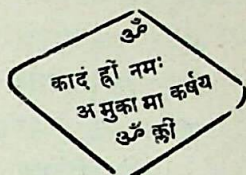 ॐ
कादं ह्रों नमः
अ मुका मा कर्षय
ॐ क्लीं